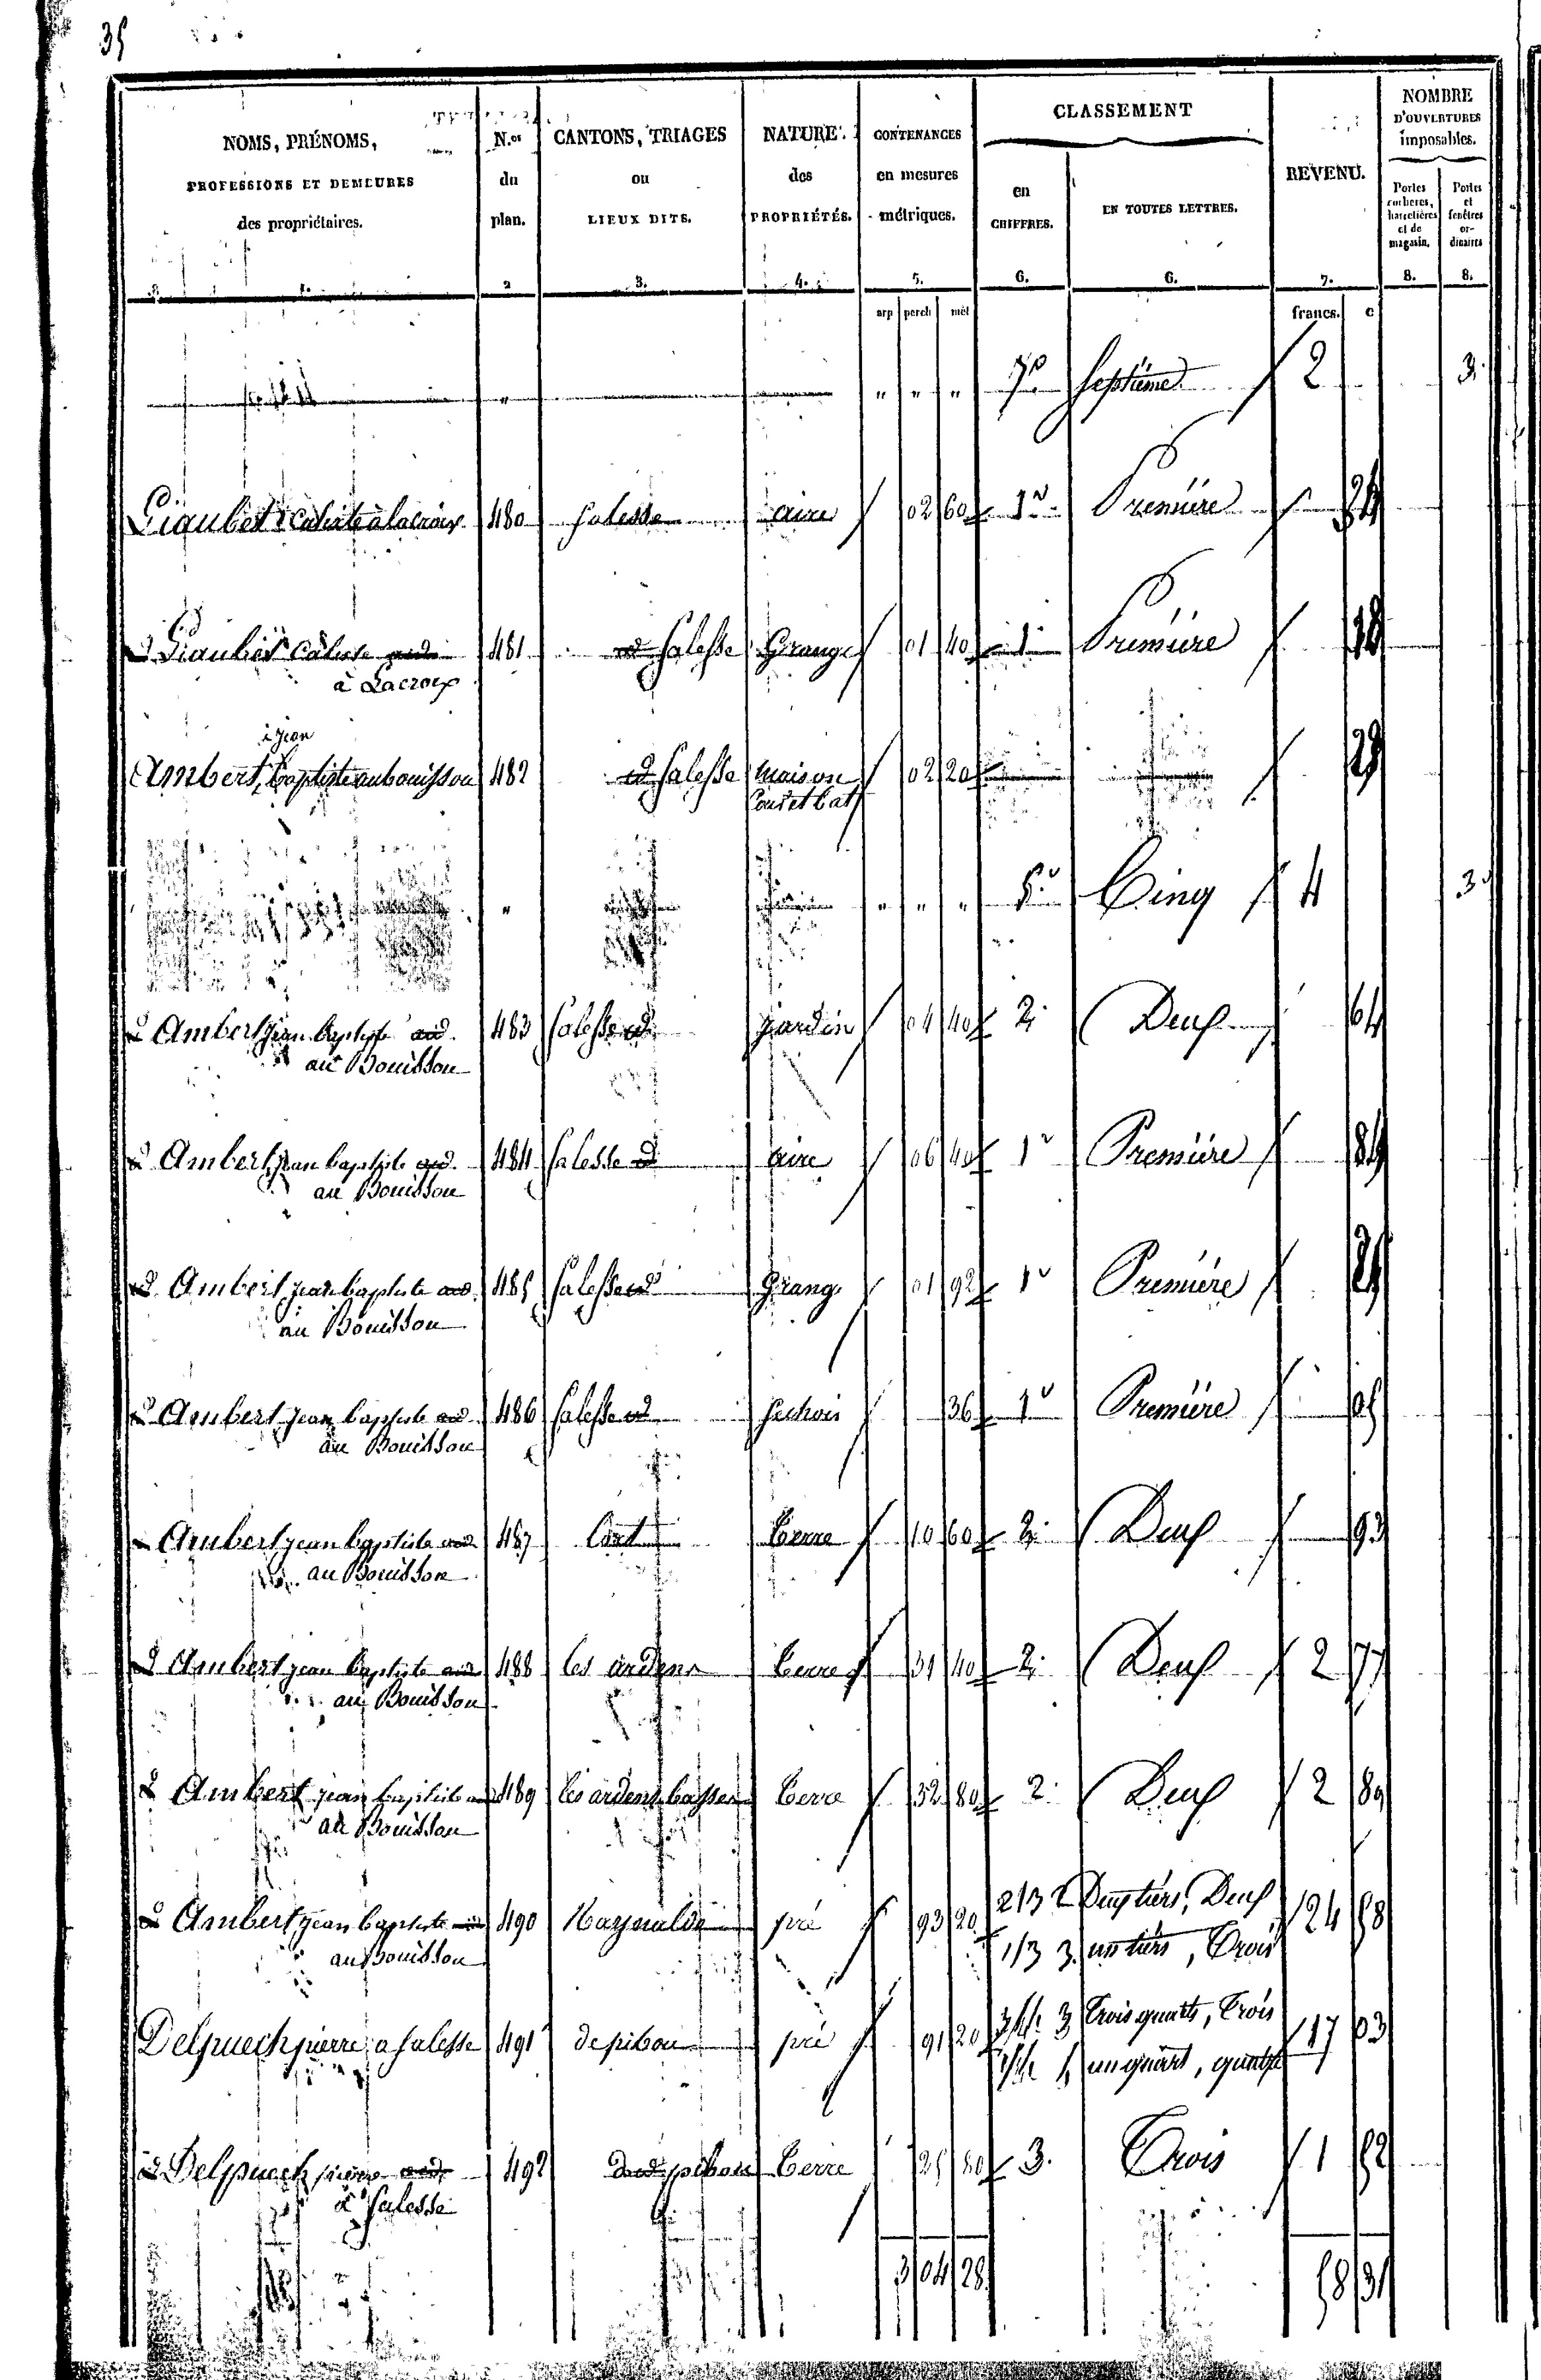 35
NOMS, PRÉNOMS, PROFESSIONS ET DEMEURES des propriétaires. 1.
N.os du plan. 2
CANTONS, TRIAGES ou LIEUX DITS. 3.
NATURE des PROPRIÉTÉS. 4.
CONTENANCES en mesures métriques. 5.
CLASSEMENT
en CHIFFRES. 6.
EN TOUTES LETTRES. 6.
REVENU. 7.
NOMBRE D'OUVERTURES imposables.
Portes cocheres, charretières et de magasin. 8.
Portes et fenêtres ordinaires 8.
arp perch mèt francs. c
" " " " 7e Septième 2 3
à Lacroix 480 Salesse aire 02 60 1e Première
481 id Salesse Grange 01 40 1 Première 18
à Lacroix
jean
Ambert, Baptiste au bouisson 482 id Salesse maison 02 20
" " " " 5e Cinq 4 3
id Ambert jean baptiste id 483 Salesse id jardin 04 40 2 Deux 64
au Bouisson
id Ambert jean baptiste id 484 Salesse id aire 06 40 1e Première 84
au Bouisson
id Ambert jean baptiste id 485 Salesse id Grange 01 92 1e Première 25
au Bouisson
id Ambert jean baptiste id 486 Salesse id sechoir 36 1e Première 05
au Bouisson
id Ambert jean baptiste id 487 terre 10 60 2 Deux 93
au Bouisson
id Ambert jean baptiste id 488 les ardens terre 31 40 2 Deux 2 77
au Bouisson
id Ambert jean baptiste id 489 les ardens basses terre 32 80 2 Deux 2 89
au Bouisson
id Ambert jean baptiste id 490 pré 93 20 2/3 2 Deux tiers, Deux 24 58
au Bouisson 1/3 3 un tiers, Trois
Delpuech pierre a Salesse 491 de pibou pré 91 20 3/4 3 Trois quarts, Trois 17 03
1/4 4 un quart, quatre
id Delpuech pierre id 492 pibou terre 25 80 3. Trois 1 52
à Salesse
3 04 28 58 31